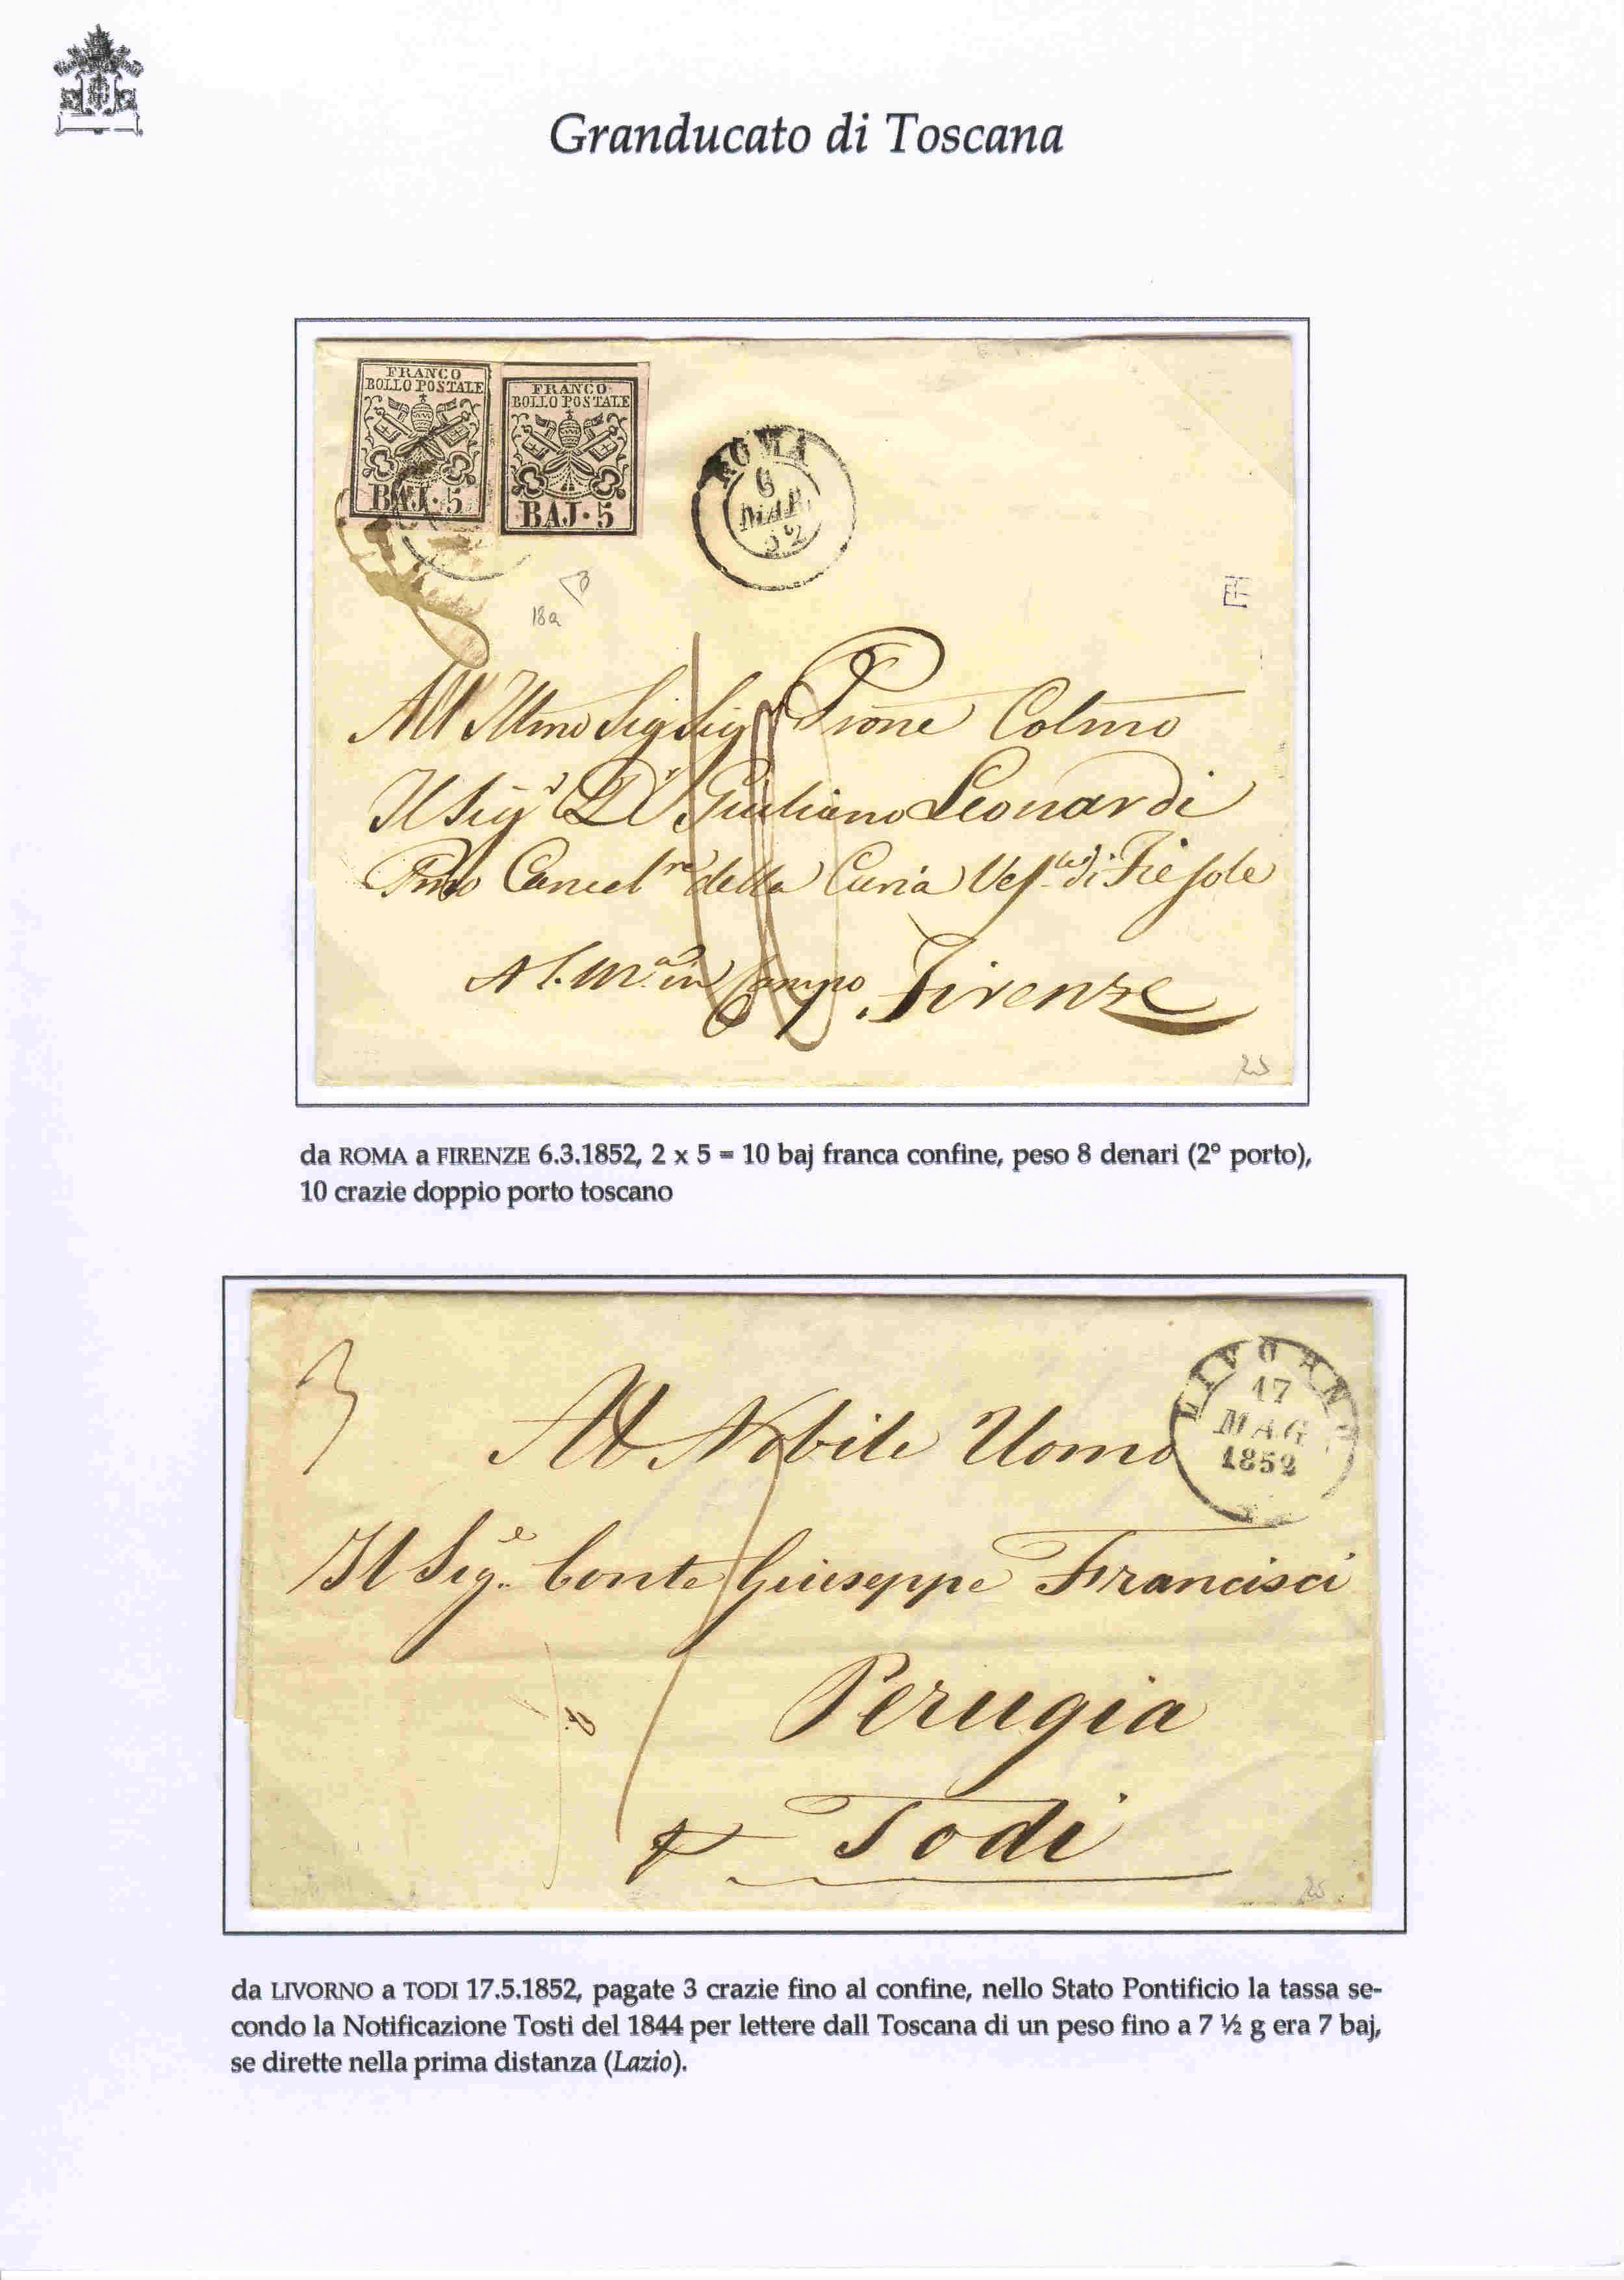 Granducato di Toscana
FRANCO
BOLLO POSTALE
BAJ·5
FRANCO
BOLLO POSTALE
BAJ·5
ROMA
6
MAR
52
18a
All'Illmo Sig Sig Prone Colmo
Il Sigr Dr Giuliano Leonardi
Primo Cancelre della Curia Vesle di Fiesole
A S. Ma in Campo Firenze
25
da ROMA a FIRENZE 6.3.1852, 2 x 5 = 10 baj franca confine, peso 8 denari (2° porto),
10 crazie doppio porto toscano
3
LIVORNO
17
MAG
1852
Al Nobile Uomo
Il Sige. Conte Giuseppe Francisci
Perugia
Todi
25
da LIVORNO a TODI 17.5.1852, pagate 3 crazie fino al confine, nello Stato Pontificio la tassa se-
condo la Notificazione Tosti del 1844 per lettere dall Toscana di un peso fino a 7 ½ g era 7 baj,
se dirette nella prima distanza (Lazio).